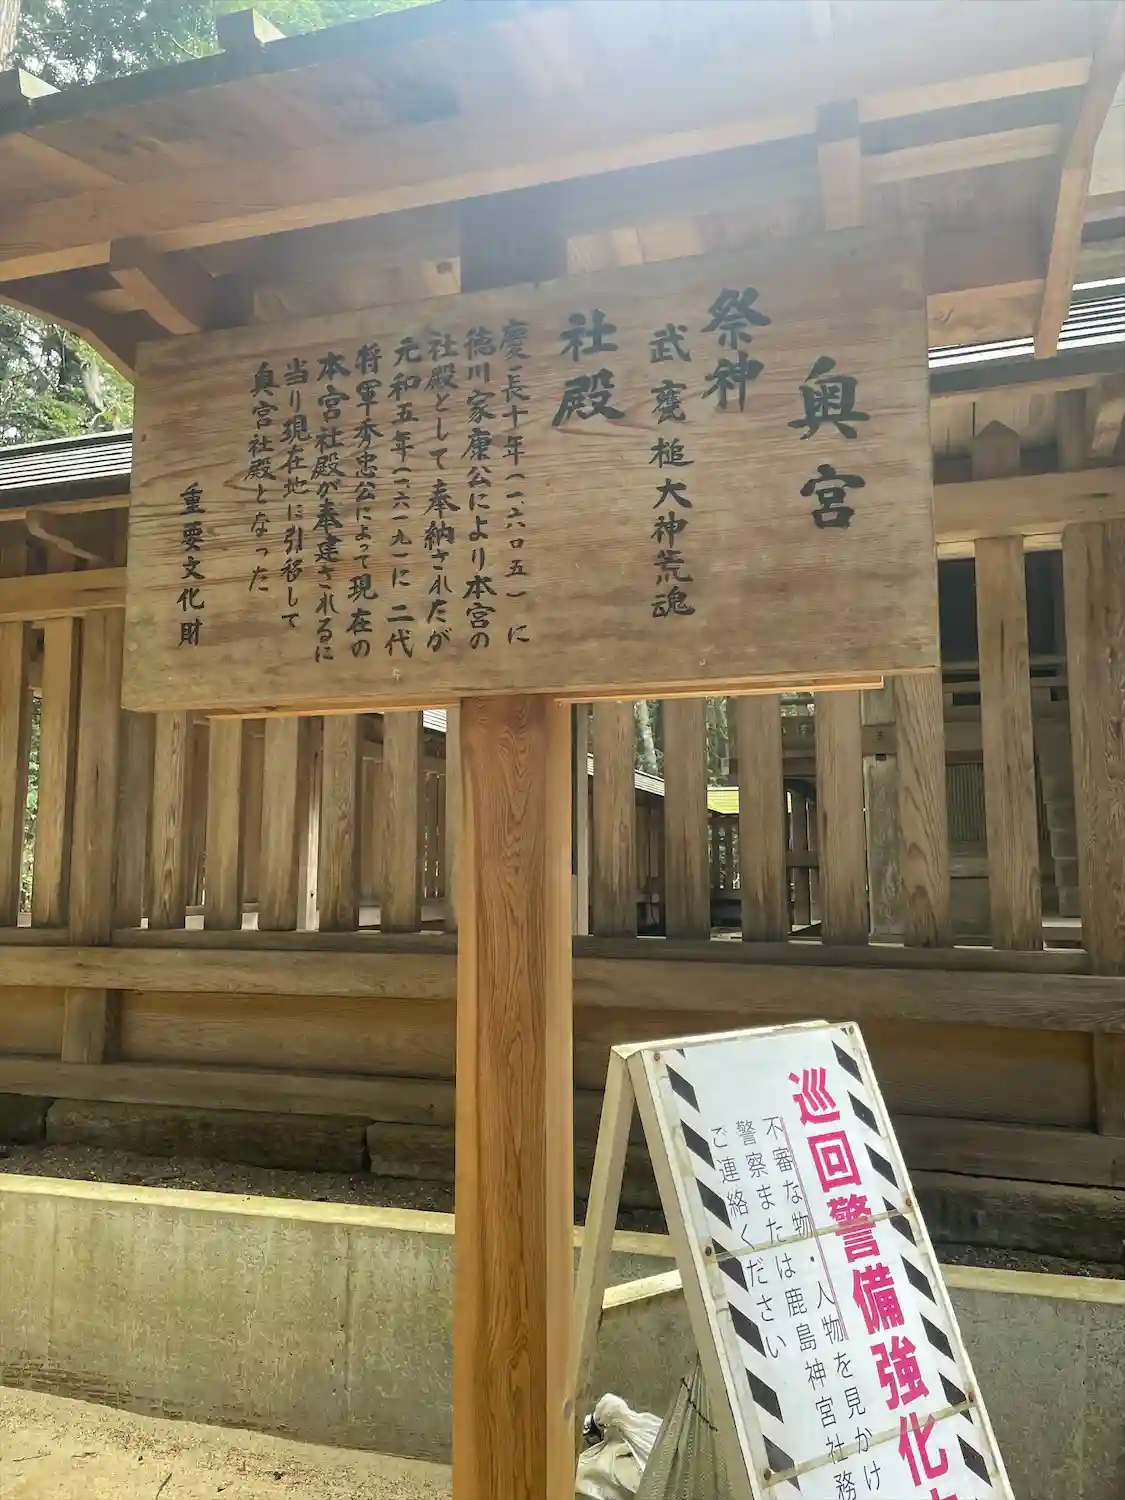 奥宮
祭神
武甕槌大神荒魂
社殿
慶長十年(一六〇五)に
徳川家康公により本宮の
社殿として奉納されたが
元和五年(一六一九)に二代
将軍秀忠公によって現在の
本宮社殿が奉建されるに
当り現在地に引移して
奥宮社殿となった
重要文化財
巡回警備強化
不審な物・人物を見かけ
警察または鹿島神宮社務
ご連絡ください